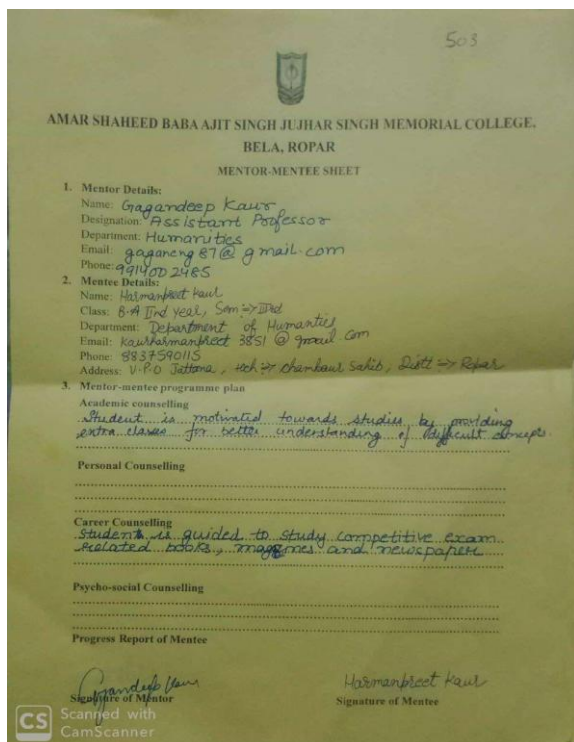 503
AMAR SHAHEED BABA AJIT SINGH JUJHAR SINGH MEMORIAL COLLEGE,
BELA, ROPAR
MENTOR-MENTEE SHEET
1. Mentor Details:
Name: Gagandeep Kaur
Designation: Assistant Professor
Department: Humanities
Email: gagancng87@gmail.com
Phone: 9914002485
2. Mentee Details:
Name: Harmanpreet Kaur
Class: B.A IInd year, Sem => IIIrd
Department: Department of Humanties
Email: Kaurharmanpreet3851@gmail.com
Phone: 8837590115
Address: V.P.O Jattana, teh => Chamkaur Sahib, Distt => Ropar
3. Mentor-mentee programme plan
Academic counselling
Student is motivated towards studies by providing
extra classes for better understanding of difficult concepts.
Personal Counselling
Career Counselling
Student is guided to study competitive exam
related books, and newspaper
Psycho-social Counselling
Progress Report of Mentee
Gagandeep Kaur
Harmanpreet Kaur
Signature of Mentor
Signature of Mentee
CS Scanned with
CamScanner